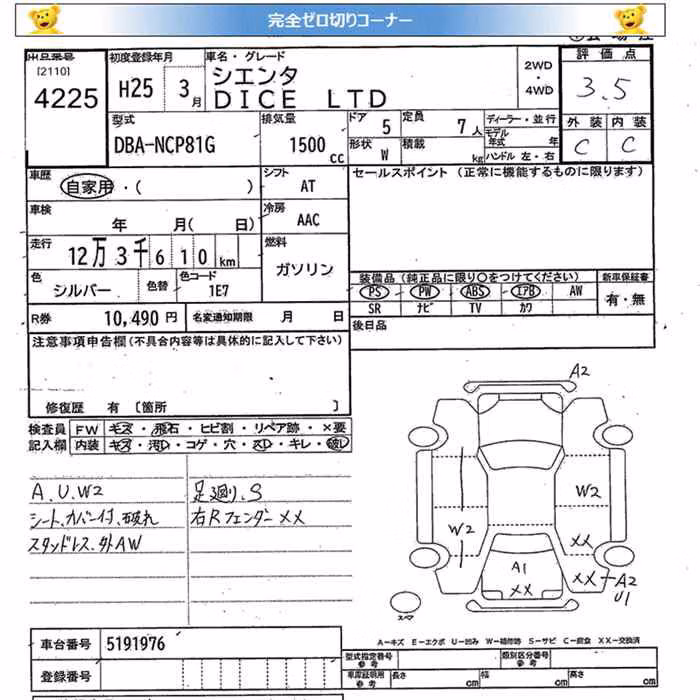 完全ゼロ切りコーナー
出品番号
[2110]
4225
初度登録年月
H25 3月
車名・グレード
シエンタ
DICE LTD
2WD
・
4WD
評価点
3.5
外装 内装
C C
型式
DBA-NCP81G
排気量
1500cc
ドア 5
定員 7人
形状 W
積載 kg
ディーラー・並行
モデル年式 年
ハンドル 左・右
車歴
自家用・( )
シフト
AT
セールスポイント (正常に機能するものに限ります)
車検
年 月( 日)
冷房
AAC
走行
12万3千610km
燃料
ガソリン
色
シルバー
色替
色コード
1E7
装備品(純正品に限り○をつけてください)
PS PW ABS エアB AW
SR ナビ TV カワ
新車保証書
有・無
R券 10,490円
名変通知期限 月 日
後日品
注意事項申告欄(不具合内容等は具体的に記入して下さい)
修復歴 有 [箇所 ]
検査員
記入欄
FW キズ・飛石・ヒビ割・リペア跡・×要
内装 キズ・汚レ・コゲ・穴・スレ・キレ・破レ
A、U、W2
シート、カバー付、破れ
スタンドレス、外AW
足廻り、S
右Rフェンダー××
A2
W2
W2
××
A1
××
××
A2
U1
スペア
車台番号 5191976
登録番号
A-キズ E-エクボ U-凹み W-補修跡 S-サビ C-腐食 XX-交換済
型式指定番号
参考
類別区分番号
参考
車庫証明用
参考
長さ cm
幅 cm
高さ cm